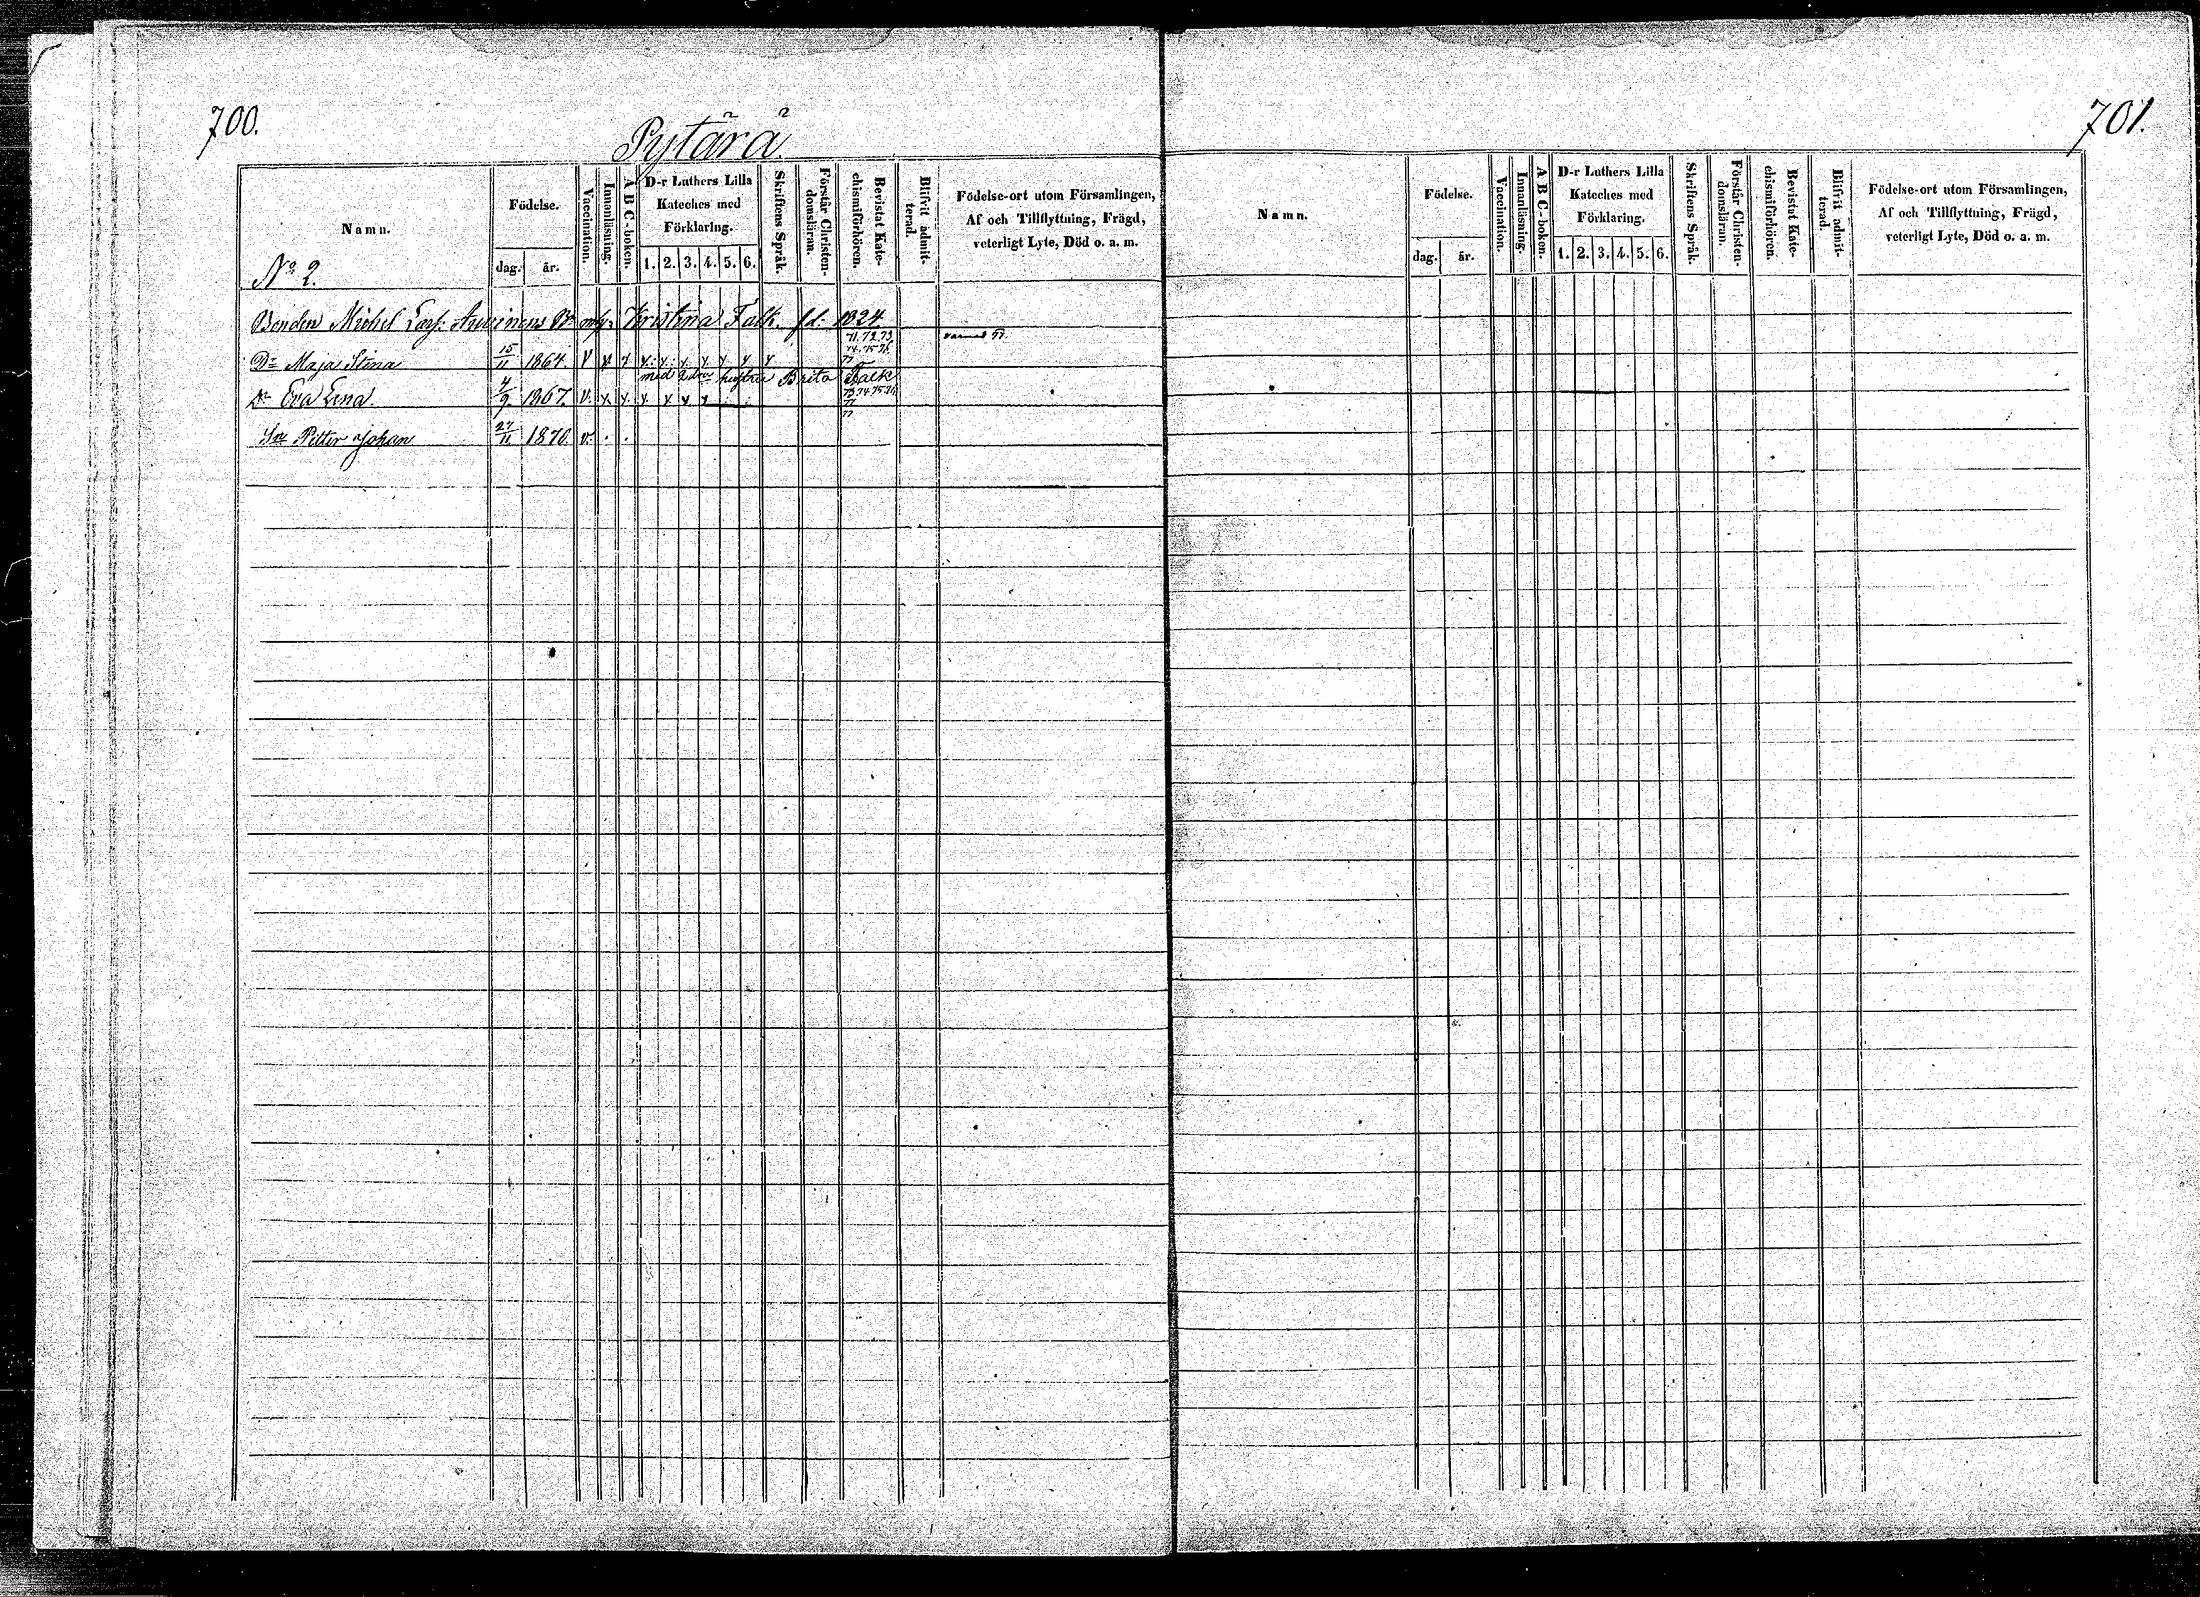 700.
Pytärä
Namn.
Födelse.
dag.
år.
Vaccination.
Innanläsning.
A B C-boken.
D-r Luthers Lilla
Kateches med
Förklaring.
1. 2. 3. 4. 5. 6.
Skriftens Språk.
Förstår Christen-
domsläran.
Bevistat Kate-
chismiförhören.
Blifvit admit-
terad.
Födelse-ort utom Församlingen,
Af och Tillflyttning, Frägd,
veterligt Lyte, Död o. a. m.
No 2.
Bonden Michel Kristina Falk. fd: 1824
71. 72. 73.
74. 75 76.
77
Dr Maja Stina 15/11 1864. v x x x x x x x x x
med 2dra hustru Brita Falk
Dr Eva Lena. 4/9. 1867. v. x. x. x x x x
73. 74. 75. 76.
77
77
Sn Petter Johan 27/11 1870. v. . .
701.
Namn.
Födelse.
dag.
år.
Vaccination.
Innanläsning.
A B C-boken.
D-r Luthers Lilla
Kateches med
Förklaring.
1. 2. 3. 4. 5. 6.
Skriftens Språk.
Förstår Christen-
domsläran.
Bevistat Kate-
chismiförhören.
Blifvit admit-
terad.
Födelse-ort utom Församlingen,
Af och Tillflyttning, Frägd,
veterligt Lyte, Död o. a. m.